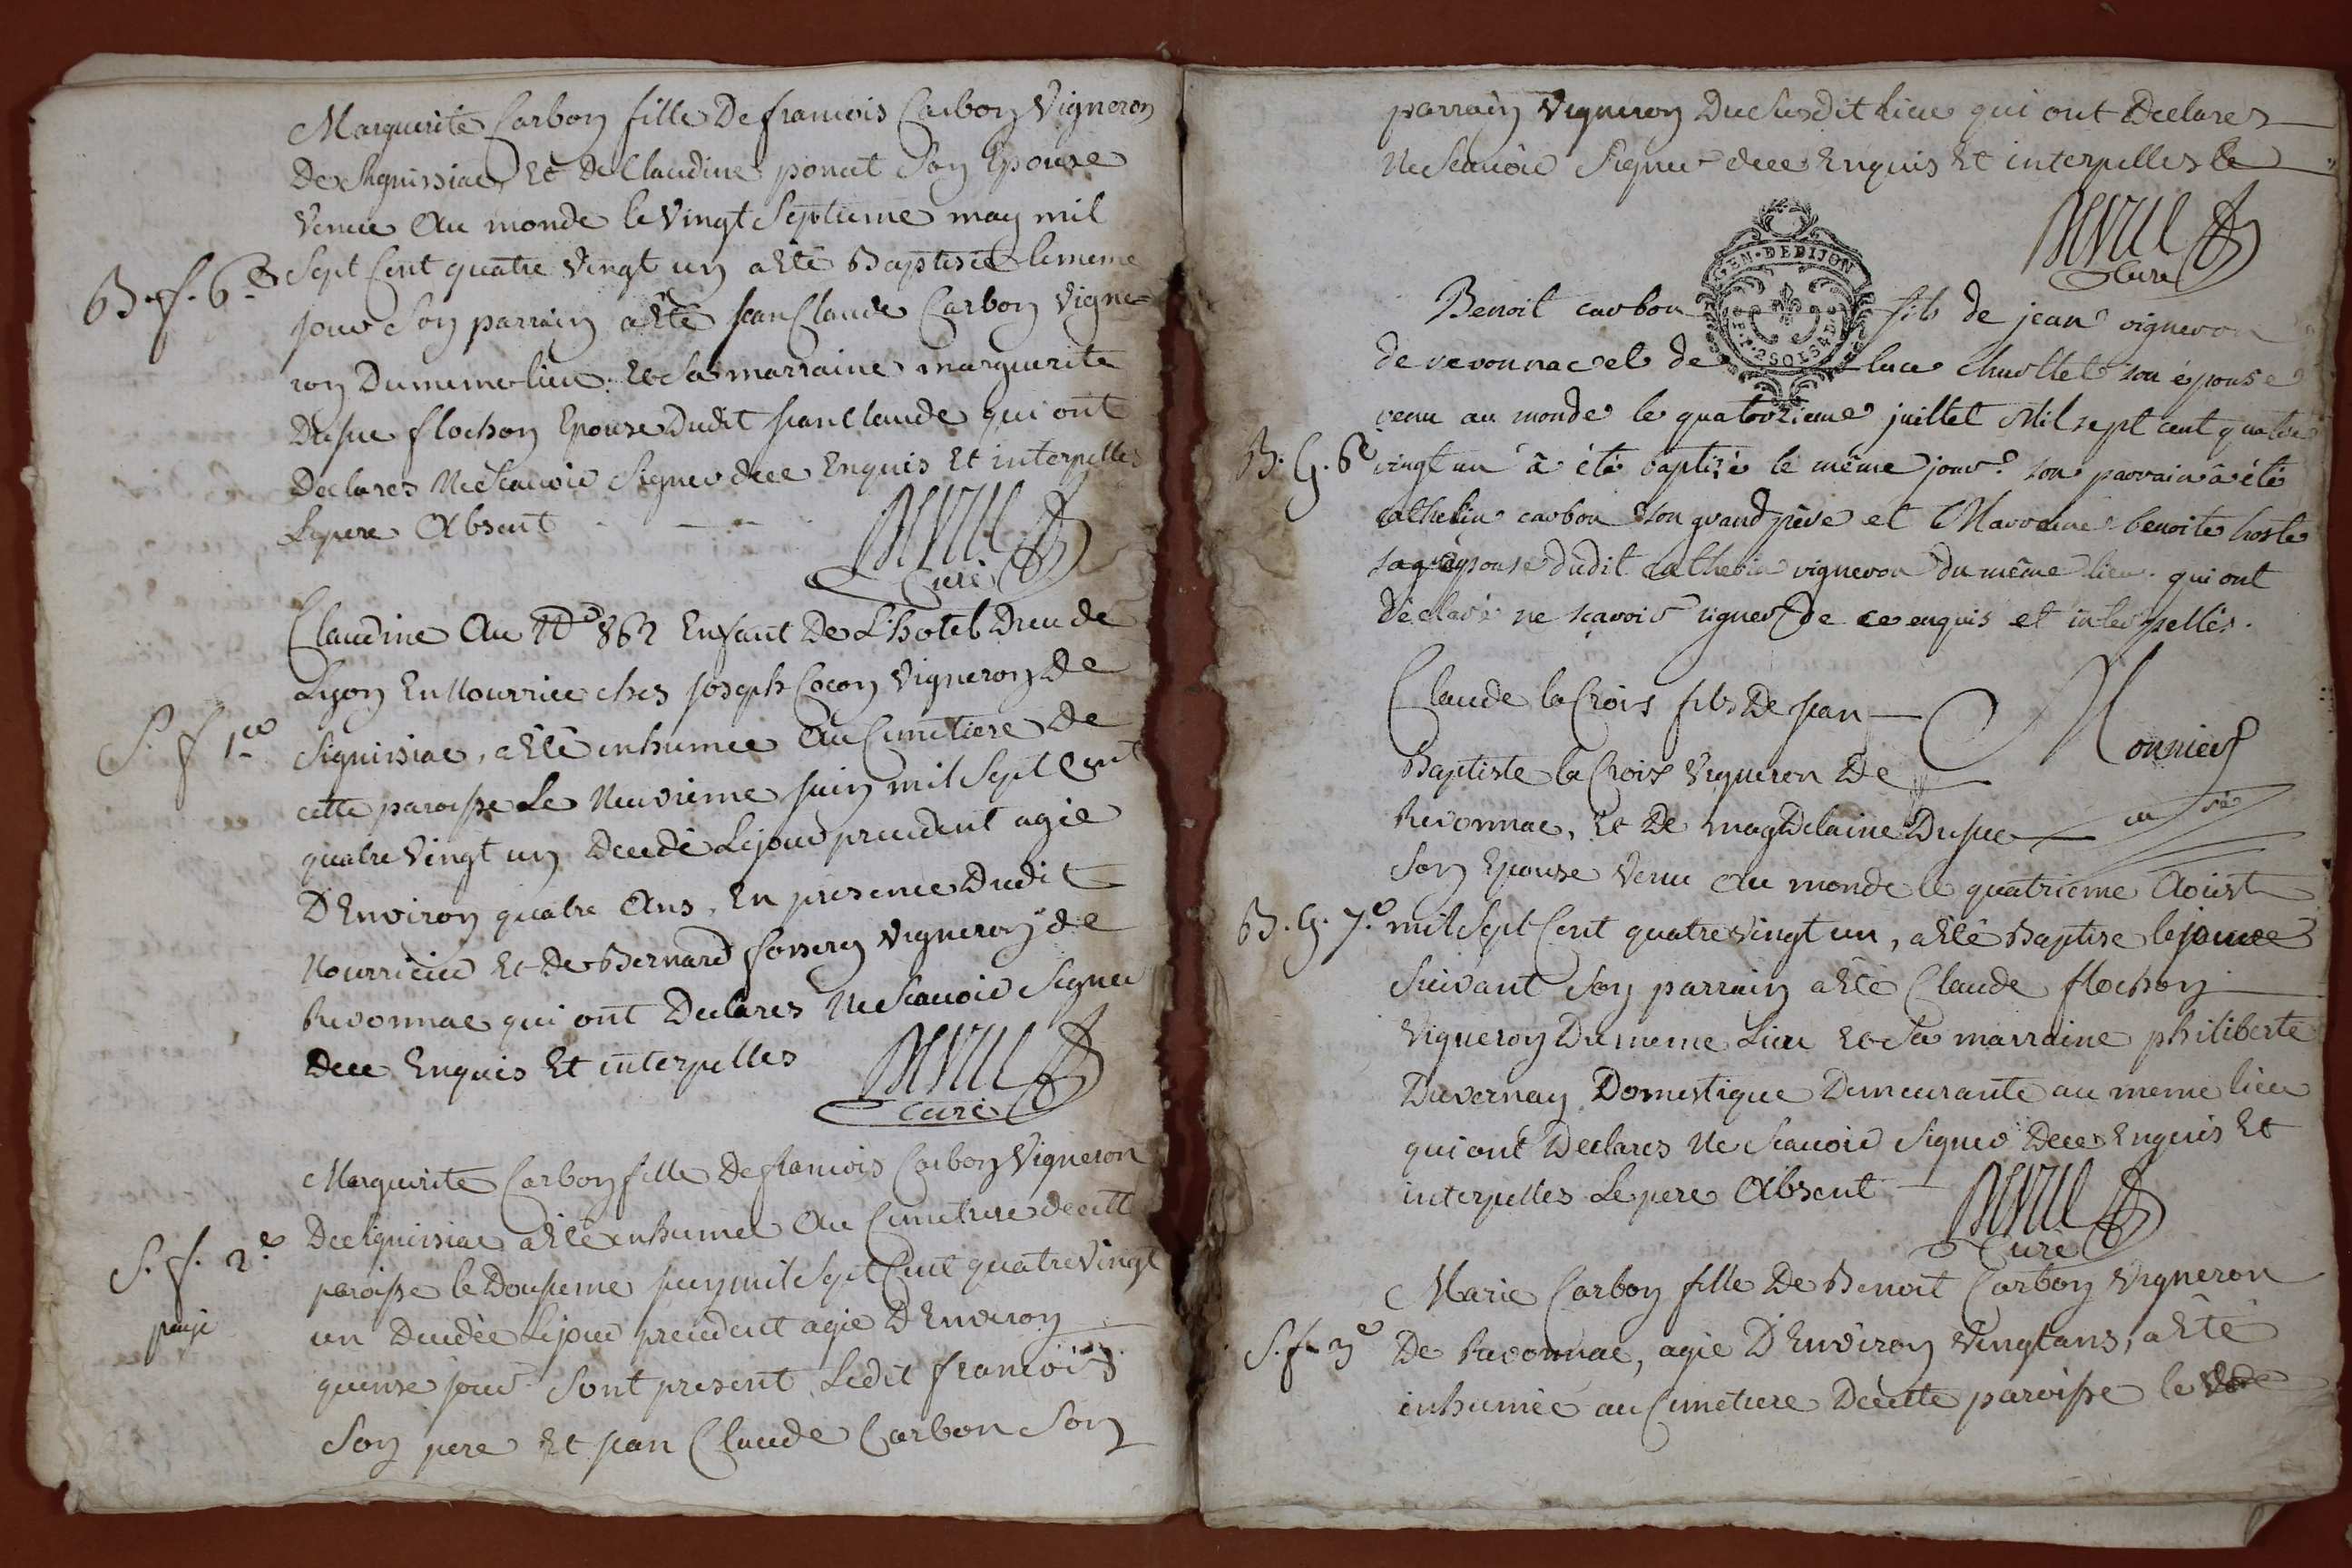 Marguerite Carbon fille De francois Carbon Vigneron
De Siguissiac Et De Claudine poncet Son Epouse
Venue Au monde le Vingt Septieme may mil
B. f. 6e Sept Cent quatre Vingt un a Eté Baptisée le meme
jour Son parrain a Eté jean Claude Carbon Vigne=
ron Du meme lieu Et Sa marraine marguerite
Dusuc flochon Epouse Dudit jean Claude qui ont
Declares Ne Scavoir Signer dece Enquis Et interpelles
Le pere Absent
Curé
Claudine Au No 862 Enfant De L'hotel Dieu de
Lyon En Nourrice ches joseph Cocon Vigneron De
S. f 1re Siguissiac, a Eté inhumée Au Cimetiere De
cette paroisse Le Neuvieme juin mil Sept Cent
quatre Vingt un Decedé Le jour precedent agée
D'Environ quatre Ans, En presence Dudit
Nourricier Et De Bernard Vigneron de
Revonnac qui ont Declares Ne Scavoir Signer
Dece Enquis Et interpelles
Curé
Marguerite Carbon fille De francois Carbon Vigneron
De Siguissiac a Eté inhumée Au Cimetiere de cette
S. f. 2e paroisse le Dousieme juin mil Sept Cent quatre Vingt
un Decedée Le jour precedent agée D'Environ
quinse jour Sont present Ledit francois
Son pere Et jean Claude Carbon Son
parrain Vigneron Du Susdit Lieu qui ont Declares
Ne Scavoir Signer dece Enquis Et interpelles
Curé
GEN · DE DIJON
2 SOLS 4 D
Benoit carbon fils de jean vigneron
de revonnac et de luce chuollet son épouse
venu au monde le quatorzieme juillet Mil sept cent quatre
B. G. 6e vingt un â été baptizé le même jour. son parrain â été
cathelin carbon son grand père et Marraine benoite hoste
épouse dudit cathelin vigneron du même lieu. qui ont
déclaré ne sçavoir signer de ce enquis et interpellés.
Monnier
curé
Claude la Crois fils De jean
Baptiste la Croix Vigneron De
Revonnac, Et De magDelaine Dusuc
Son Epouse Venu Au monde le quatrieme Aoust
B. G. 7e mil Sept Cent quatre Vingt un, a Eté Baptise le jour
Suivant Son parrain a Eté Claude flochon
Vigneron Du meme Lieu Et Sa marraine philiberte
Duvernay Domestique Demeurante au meme lieu
qui ont Declares Ne Scavoir Signer Dece Enquis Et
interpelles Le pere Absent
Curé
Marie Carbon fille De Benoit Carbon Vigneron
S. f. 3e De Revonnac, agée D'Environ Vingt ans, a Eté
inhumée au Cimetiere De cette paroisse le